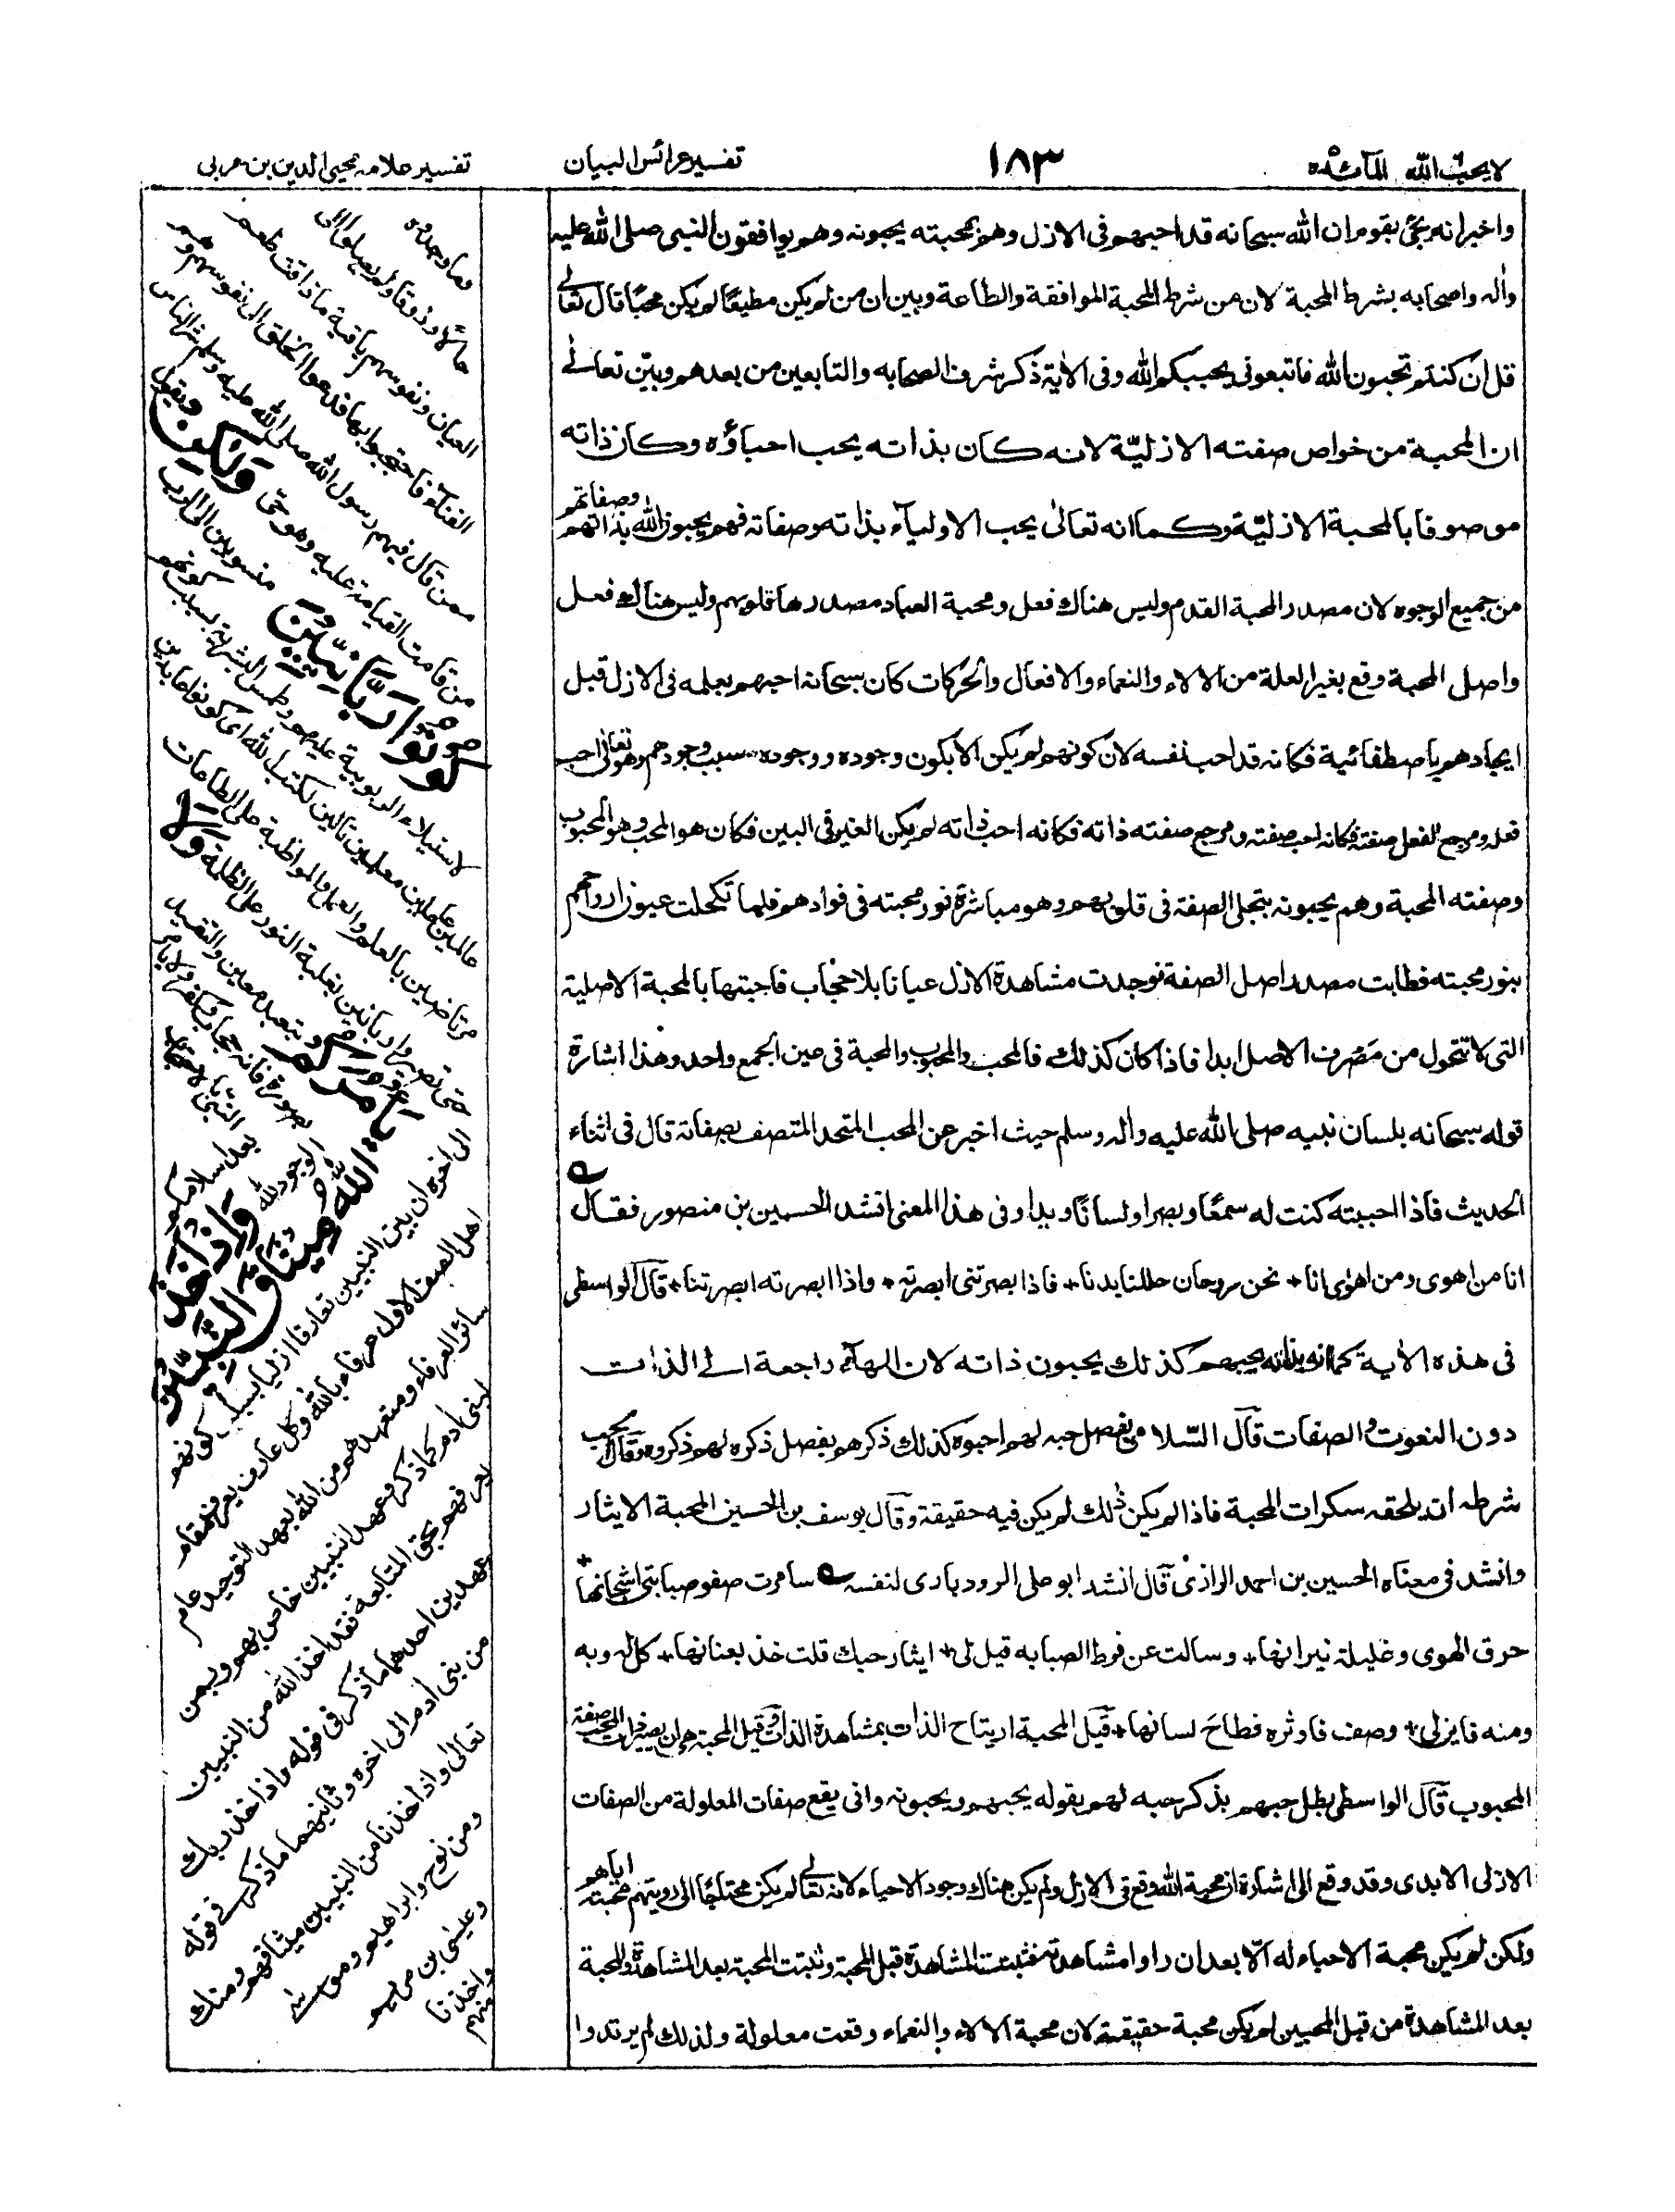 لا يحب الله المآئدة ١٨٣ تفسير عرائس البيان تفسير علامه محيي الدين بن عربي
واخبر انه يجئ بقوم ان الله سبحانه قد احبهم فى الازل وهم بمحبته يحبونه وهم يوافقون النبى صلى الله عليه
واٰله واصحابه بشرط المحبة لان من شرط المحبة الموافقة والطاعة وبين ان من لم يكن مطيعًا لم يكن محبًا قال تعالى
قل ان كنتم تحبون الله فاتبعونى يحببكم الله وفى الاٰية ذكر شرف الصحابه والتابعين من بعدهم وبيّن تعالىٰ
ان المحبة من خواص صفته الازليّة لانه كان بذاته يحب احباؤه وكان ذاته
موصوفا بالمحبة الازليّة وكما انه تعالىٰ يحب الاوليآء بذاته وصفاته فهم يحبون الله بذاتهم وصفاتهم
من جميع الوجوه لان مصدر المحبة القدم وليس هناك فعل ومحبة العباد مصدرها قلوبهم وليس هنالك فعل
واصل المحبة وقع بغير العلة من الالاء والنعماء والافعال والحركات كان سبحانه احبهم بعلمه فى الازل قبل
ايجادهم باصطفائية فكانه قد احب نفسه لان كونهم لم يكن الا بكون وجوده ووجوده سبب وجودهم وهو تعالىٰ احب
فعله ومرجع الفعل صفته فكانه احب صفته ومرجع صفته ذاته فكانه احب ذاته لم يكن الغير فى البين فكان هو المحب وهو المحبوب
وصفته المحبة وهم يحبونه بتجلى الصفة فى قلوبهم وهو مباشرة نور محبته فى فوادهم فلما تكحلت عيون ارواحهم
بنور محبته فطابت مصدر اصل الصفة فوجدت مشاهدة الازل عيانا بلا حجاب فاحبتها بالمحبة الاصلية
التى لا تتحول من مَصْرف الاصل ابدا فاذا كان كذلك فالمحب والمحبوب والمحبة فى عين الجمع واحد وهذا اشارة
قوله سبحانه بلسان نبيه صلى الله عليه واٰله وسلم حيث اخبر عن المحب المتحد المتصف بصفاته قال فى اثناء
الحديث فاذا احببته كنت له سمعًا وبصرا ولسانًا ويدا وفى هذا المعنى انشد الحسين بن منصور فقال
انا من اهوى ومن اهوٰى انا + نحن روحان حللنا بدنا + فاذا بصرتنى ابصرته + واذا ابصرته ابصرتنا + قال الواسطى
فى هذه الاٰية كما انه بذاته يحبهم كذلك يحبون ذاته لان الهآء راجعة الى الذات
دون النعوت والصفات قال السّلامى بفضل حبه لهم احبوه كذلك ذكرهم بفضل ذكره لهم ذكروه وقال
شرطه ان يلحقه سكرات المحبة فاذا لم يكن ذٰلك لم يكن فيه حقيقة وقال يوسف بن الحسين المحبة الايثار
وانشد فى معناه الحسين بن احمد الرازىٰ قال انشد ابو على الرودبارى لنفسه سامرت صفو صبابتى اشجانها +
حرق الهوى وغليلة نيرانها + وسالت عن فرط الصبابه قيل لى + ايثار حبك قلت خذ بعنانها + كل له وبه
ومنه فايزلى + وصف فاوثره فطاحَ لسانها + قيل المحبة ارتياح الذات بمشاهدة الذات وقيل المحبة هى ان يصير ذات المحب صفة
المحبوب قال الواسطى بطل حبهم بذكر حبه لهم بقوله يحبهم ويحبونه وانى يقع صفات المعلولة من الصفات
الازلى الابدى وقد وقع الى اشارة ان محبة الله وقع فى الازل ولم يكن هناك وجود الاحباء لانه تعالىٰ لم يكن محتاجًا الى رويتهم محبته اياهم
ولكن لم يكن محبة الاحباء له الّا بعد ان راوا مشاهدته فثبتت المشاهدة قبل المحبة وثبتت المحبة بعد المشاهدة والمحبة
بعد المشاهدة من قبل المحبين لم يكن محبة حقيقية لان محبة الالاء والنعماء وقعت معلولة ولذلك لم يرتدوا
وما وجدوه
حالًا وذوقا ولم يصلوا الى
العيان ونفوسهم باقية ما ذاقت طعم
الفنآء فاحتجبوا بها فدعوا الخلق الى نفوسهم وهم
ممن قال فيهم رسول الله صلى الله عليه وسلم شر الناس
من قامت القيامة عليه وهو حى وَلٰكِنْ ويقول
كُوْنُوْا رَبَّانِيّٖنَ منسوبين الى الرب
لاستيلاء الربوبية عليهم وطمس البشرية بسبب كونهم
عالمين عاملين معلمين تالين لكتب الله اى كونوا عابدين
مرتاضين بالعلم والعمل والمواظبة على الطاعات
حتى تصيروا ربانين بغلبة النور على الظلمة وَلَا
يَاْمُرَكُمْ
بعد اسلامكم
الوجود لله وَاِذْ اَخَذَ
اللهُ مِيْثَاقَ النَّبِيّٖنَ
الى اخره ان بين النبيين تعارفا ازليا بسبب كونهم
اهل الصف الاول عرفاء بالله وكل عارف يعرف مقام
سائر العرفاء ومتعهدهم من الله بعهد التوحيد عام
لبنى اٰدم كما ذكر وعهد النبيين خاص بهم وبمن
يعرفهم بحق المتابعة فقد اخذ الله من النبيين
عهدين احدهما ما ذكر فى قوله واذ اخذ ربك
من بنى اٰدم الى اخره وثانيهما ما ذكر فى قوله
تعالى واذ اخذنا من النبيين ميثاقهم ومنك
ومن نوح وابراهيم وموسىٰ
وعيسٰى بن مريم
واخذنا
منهم